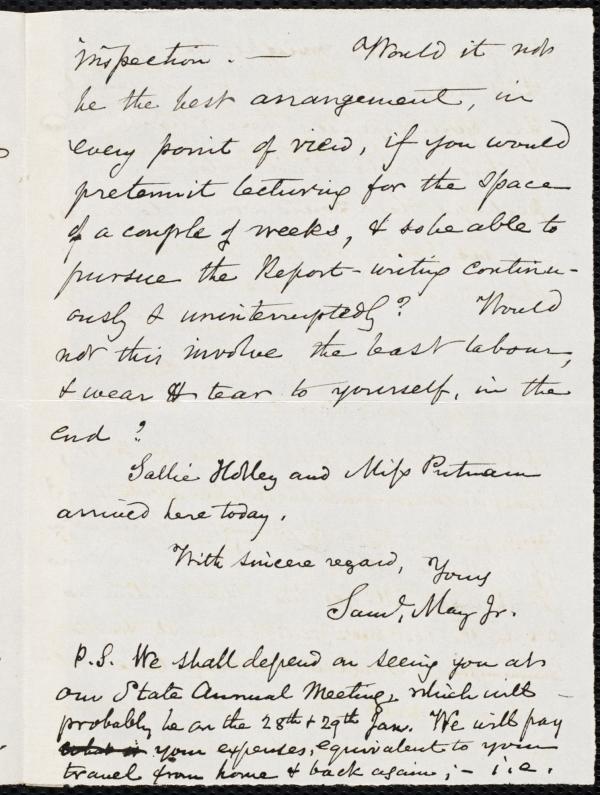 inspection. — Would it not
be the best arrangement, in
every point of view, if you would
pretermit lecturing for the space
of a couple of weeks, & so be able to
pursue the Report-writing continu-
ously & uninterruptedly? Would
not this involve the least labour,
& wear & tear to yourself, in the
end?
Sallie Holley and Miss Putnam
arrived here today.
With sincere regard, Yours
Saml. May Jr.
P.S. We shall depend on seeing you at
our State Annual Meeting, which will
probably be on the 28th & 29th Jan. We will pay
your expenses, equivalent to your
travel from home & back again; - i.e.